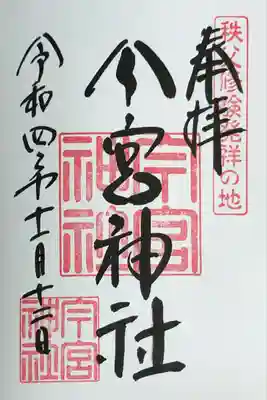 秩父修験発祥の地
奉拝
今宮神社
今宮神社
令和四年十一月十二日
今宮神社